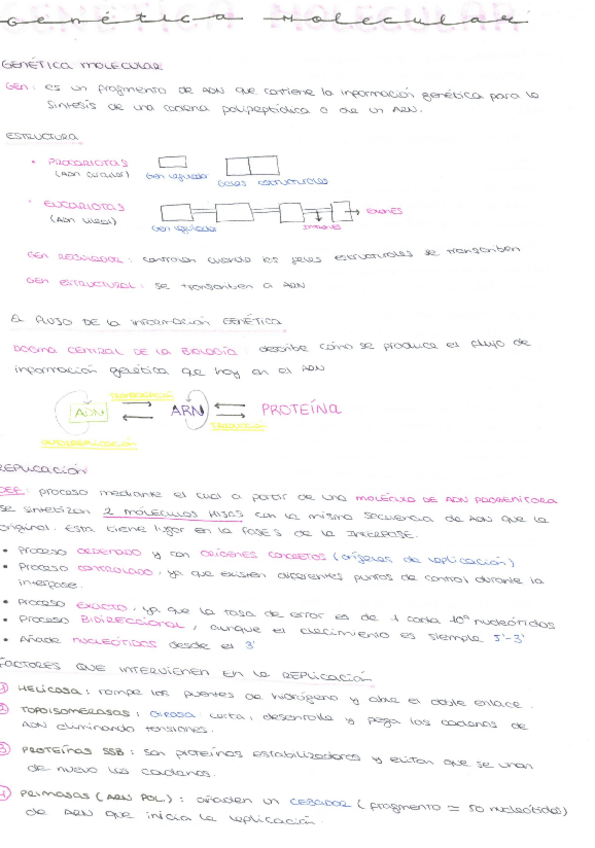 Genética Molecular
GENÉTICA MOLECULAR
GEN: es un fragmento de ADN que contiene la información genética para la
síntesis de una cadena polipeptídica o de un ARN.
ESTRUCTURA
• PROCARIOTAS
(ADN circular) Gen regulador Genes estructurales
• EUCARIOTAS
(ADN lineal) Gen regulador INTRONES EXONES
GEN REGULADOR: controlan cuando los genes estructurales se transcriben
GEN ESTRUCTURAL: se transcriben a ARN
EL FLUJO DE LA INFORMACIÓN GENÉTICA
DOGMA CENTRAL DE LA BIOLOGÍA: describe cómo se produce el flujo de
información genética que hay en el ADN
TRANSCRIPCIÓN
ADN ARN PROTEÍNA
TRADUCCIÓN
AUTORREPLICACIÓN
REPLICACIÓN
DEF: proceso mediante el cual a partir de una MOLÉCULA DE ADN PROGENITORA
se sintetizan 2 MOLÉCULAS HIJAS con la misma secuencia de ADN que la
original. Esta tiene lugar en la FASE S DE LA INTERFASE.
• Proceso ORDENADO y con ORÍGENES CONCRETOS (orígenes de replicación)
• Proceso CONTROLADO, ya que existen diferentes puntos de control durante la
interfase.
• Proceso EXACTO, ya que la tasa de error es de 1 cada 10⁹ nucleótidos
• Proceso BIDIRECCIONAL, aunque el crecimiento es siempre 5'-3'
• Añade NUCLEÓTIDOS desde el 3'
FACTORES QUE INTERVIENEN EN LA REPLICACIÓN
1 HELICASA: rompe los puentes de hidrógeno y abre el doble enlace.
2 TOPOISOMERASAS: GIRASA corta, desenrolla y pega las cadenas de
ADN eliminando tensiones.
3 PROTEÍNAS SSB: son proteínas estabilizadoras y evitan que se unan
de nuevo las cadenas.
4 PRIMASAS (ARN POL): añaden un CEBADOR (fragmento ≃ 50 nucleótidos)
de ARN que inicia la replicación.